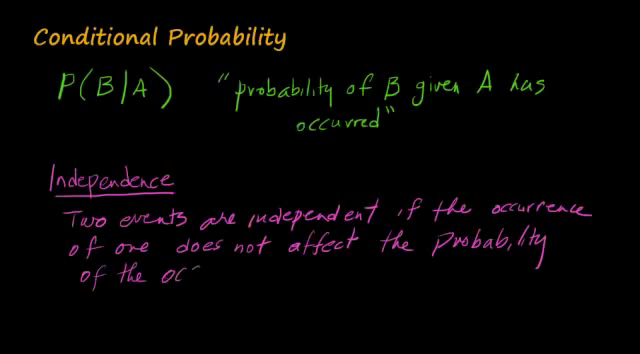 Conditional Probability
P(B/A) "probability of B given A has
occurred"
Independence
Two events are independent if the occurrence
of one does not affect the probability
of the oc